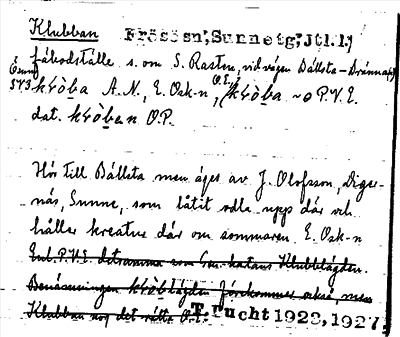 Klubban Frösösn., Sunne tg., Jtl. l.
fäbodställe s. om S. Rasten, vid vägen Bällsta–
A.N., E. Osk-n, O.E., P.V.E.
dat. O.P.
Hör till Bällsta men äges av J. Olofsson, Diger-
näs, Sunne, som låtit odla upp där och
håller kreatur där om sommaren. E. Osk-n
Enl. P.V.E. detsamma som Klubblägden.
Benämningen förekommer också, men
Klubban nog det rätta O.P. T. Fucht 1923, 1927.